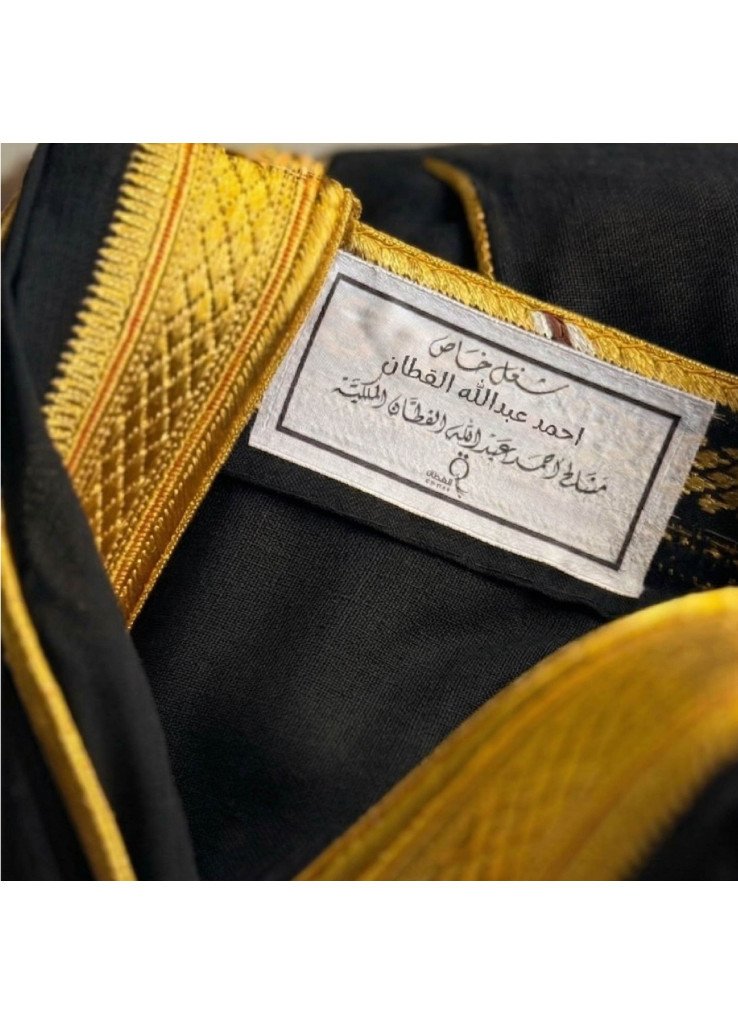 شغل خاص
احمد عبدالله القطان
مشالح أحمد عبدالله القطان الملكية
القطان